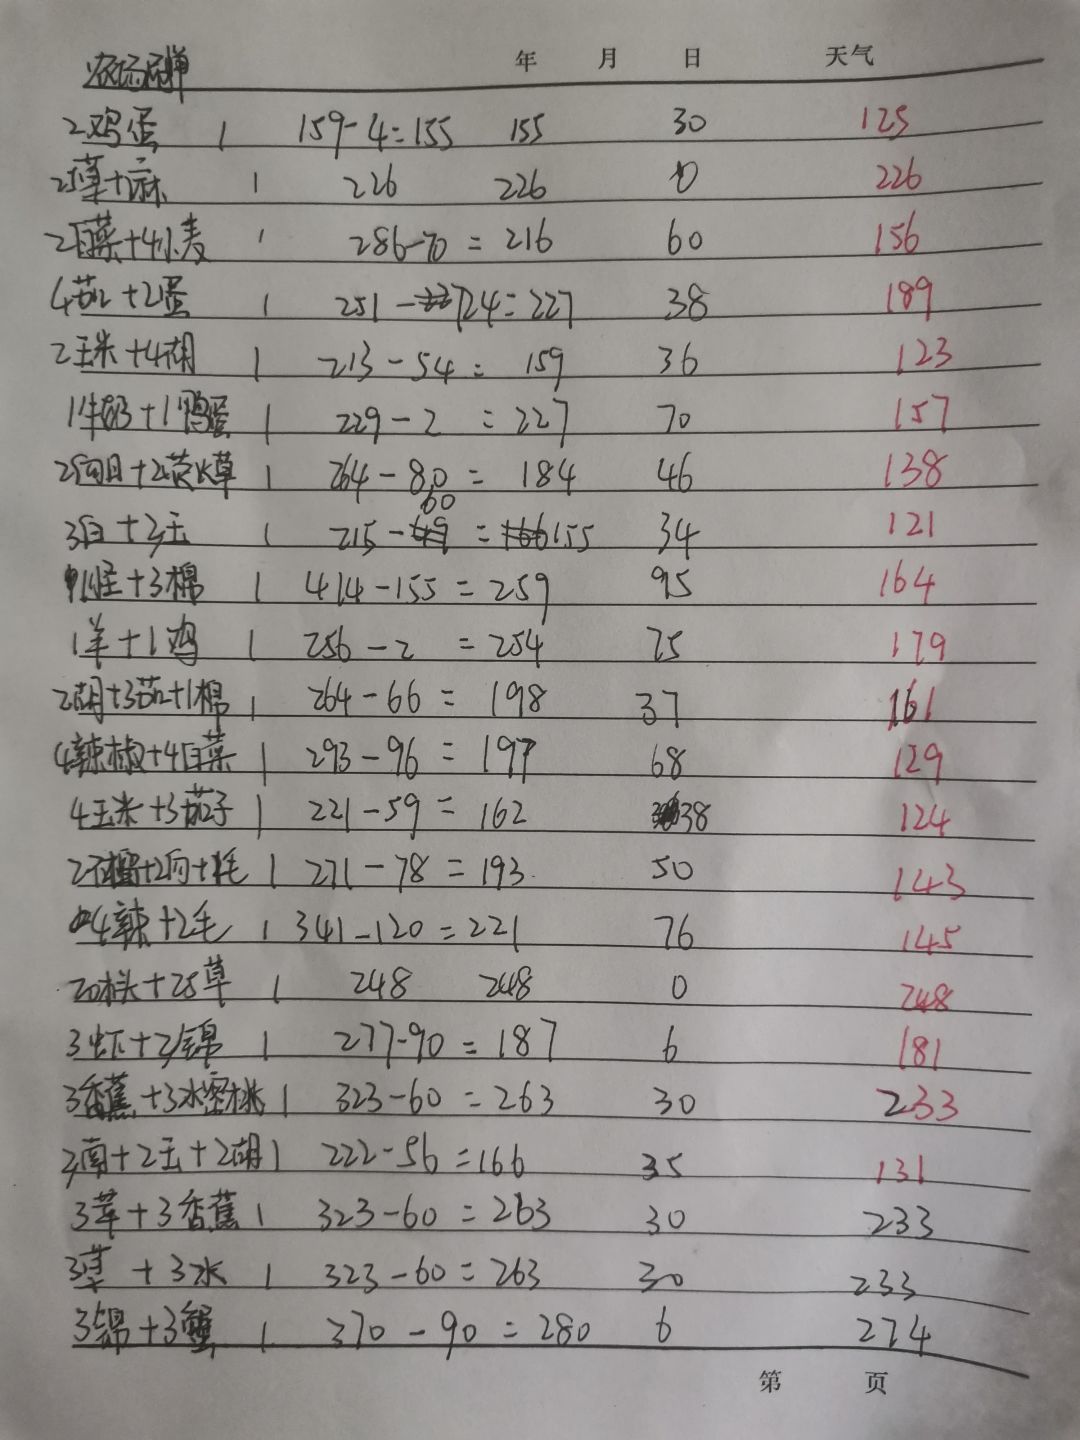 年 月 日 天气
农场
2鸡蛋 1 159-4=155 155 30 125
草+麻 1 226 226 0 226
2白菜+4小麦 1 286-70=216 60 156
4茄+2蛋 1 251-24=227 38 189
2玉米+4胡 1 213-54=159 36 123
1牛奶+1鸭蛋 1 229-2=227 70 157
2向日+2荧火草 1 264-80=184 46 138
3白+3玉 1 215-60=155 34 121
1怪+3棉 1 414-155=259 95 164
1羊+1鸡 1 256-2=254 75 179
2胡+3茄+1棉 1 264-66=198 37 161
4辣椒+4白菜 1 293-96=197 68 129
4玉米+3茄子 1 221-59=162 38 124
1 271-78=193 50 143
4辣+2毛 1 341-120=221 76 145
20木头+25草 1 248 248 0 248
3虾+3锦 1 277-90=187 6 181
3香蕉+3水密桃 1 323-60=263 30 233
3南+2玉+2胡 1 222-56=166 35 131
3苹+3香蕉 1 323-60=263 30 233
3苹+3水 1 323-60=263 30 233
3锦+3蟹 1 370-90=280 6 274
第 页